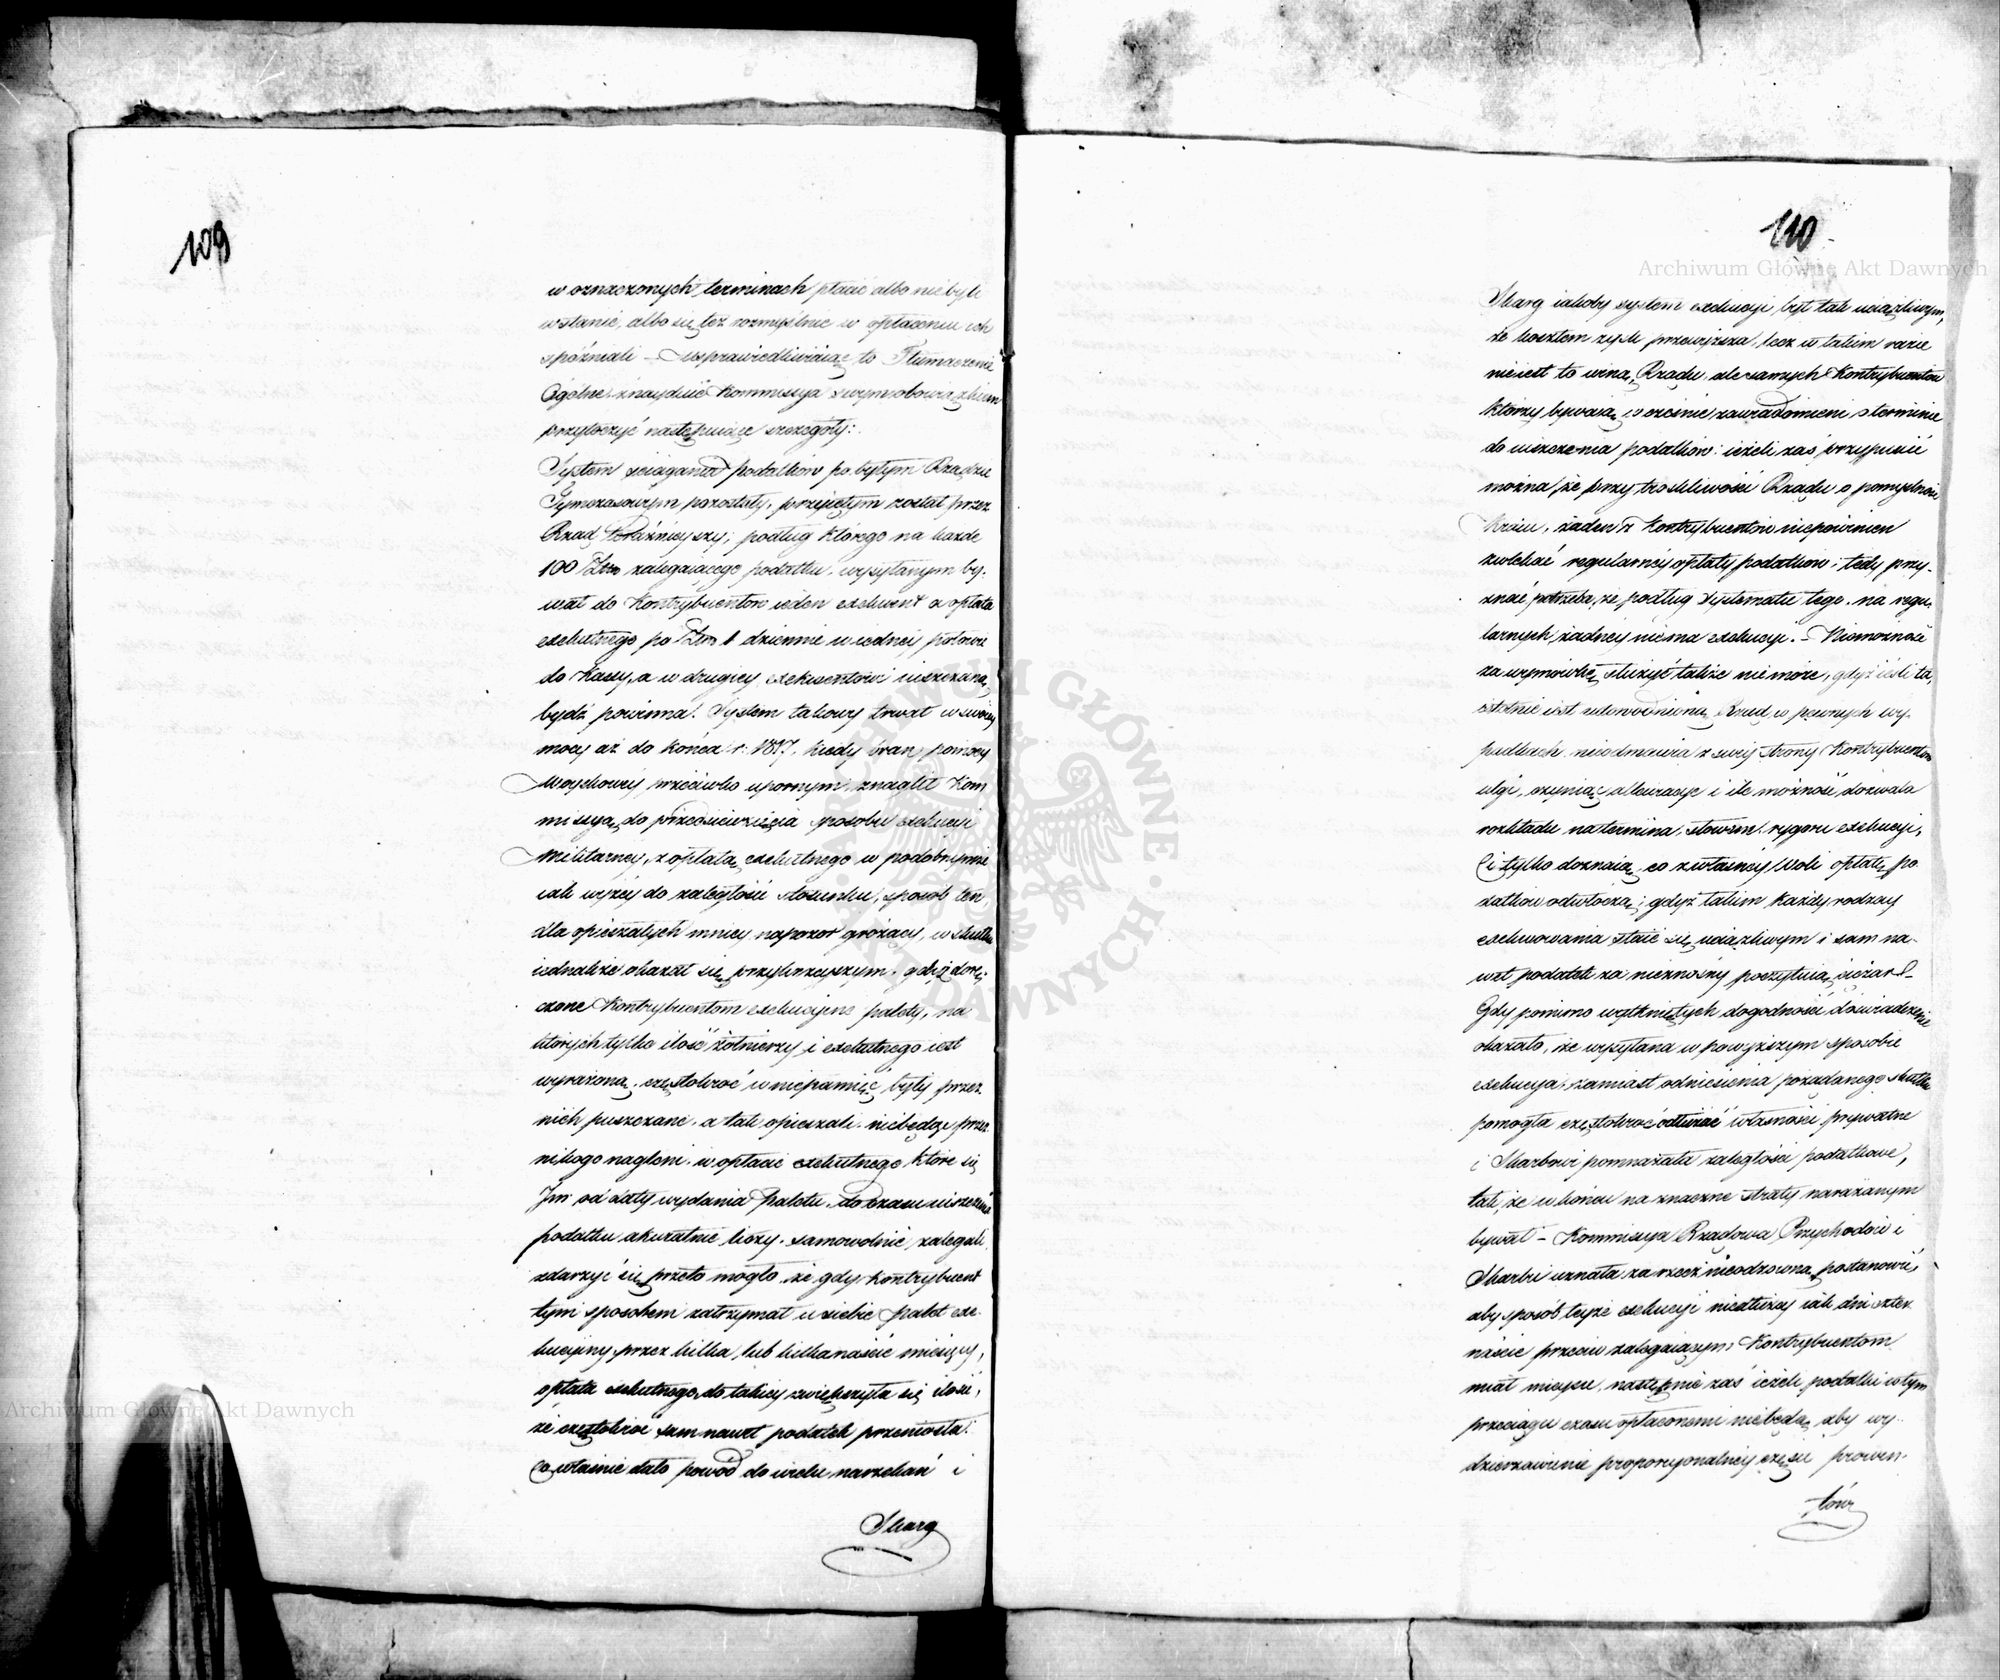 109
w oznaczonych terminach płacić albo niebyli
wstanie, albo się też rozmyślnie w opłaceniu ich
spóźniali – Usprawiedliwiaiąc to Tłumaczenie
Ogólne, znayduie Kommissya swym obowiązkiem
przytoczyć następuiące szczegóły:
System ściągania podatków po byłym Rządzie
Tymczasowym pozostały, przyiętym został przez
Rząd Późnieyszy; podług którego na każde
100 Złt zalegaiącego podatku, wysyłanym by-
wał do Kontrybuentów ieden exekwent a opłata
exekutnego po Złt 1 dziennie w iedney połowie
do Kassy, a w drugiey exekwentowi uiszczaną
bydź powinna. System takowy trwał w swoiey
mocy aż do końca r: 1817, kiedy bran pomocy
Woyskowey przeciwko upornym, znaglił Kom
missyą do przedsięwzięcia sposobu exekucyi
Militarney, z opłatą exekutnego w podobnymże
iak wyżey do zaległości stosunku; sposób ten,
dla opieszałych mniey napozór grożący, w skutku
iednakże okazał się przykrzeyszym, gdyż dorę-
czone Kontrybuentom exekucyine palety, na
których tylko ilość żołnierzy i exekutnego iest
wyrażoną, częstokroć w niepamięć były przez
nich puszczane, a tak opieszali, niebędąc przez
nikogo nagleni, w opłacie exekutnego które się
Im od daty wydania Paletu, do czasu uiszczenia
podatku akuratnie liczy, samowolnie zalegali.
zdarzyć się przeto mogło, że gdy kontrybuent
tym sposobem zatrzymał u siebie palet exe-
kucyiny przez kilka, lub kilkanaście miesięcy,
opłata exekutnego do takiey zwiększyła się ilości,
że częstokroć sam nawet podatek przeniosła.
Co właśnie dało powód do wielu narzekań i
Skarg
110
Archiwum Główne Akt Dawnych
Skarg iakoby system exekucyi, był tak uciążliwym,
że kosztem zysk przewyższa, lecz w takim razie
nieiest to winą Rządu, ale samych Kontrybuentów
którzy bywaią wcześnie zawiadomieni o terminie
do uiszczenia podatków: ieżeli zaś przypuścić
można, że przy troskliwości Rządu o pomyślność
Kraiu, żaden z Kontrybuentów niepowinien
zwlekać regularney opłaty podatków; tedy przy-
znać potrzeba, że podług Systematu tego, na regu-
larnych żadney niema exekucyi. – Niemożność
za wymówkę służyć także nie może, gdyż ieśli ta,
istotnie iest udowodnioną Rząd, w pewnych wy-
padkach nieodmawia z swey strony Kontrybuentom
ulgi, czyniąc allewiacye i ile możność dozwala
rozkładu na termina, słowem, rygoru exekucyi,
Ci tylko doznaią, co z własney Woli opłatę po
datków odwłóczą; gdyż takim każdy rodzay
exekwowania staie się uciążliwym i sam na-
wet podatek za nieznośny poczytuią ciężar –
Gdy pomimo wytkniętych dogodności doświadczenie
okazało, że wysyłana w powyższym sposobie
exekucya, zamiast odniesienia pożądanego skutku
pomogła częstokroć odłużać własności prywatne
i Skarbowi pomnażała zaległości podatkowe,
tak, że w końcu na znaczne straty narażanym
bywał – Kommissya Rządowa Przychodów i
Skarbu uznała za rzecz nieodzowną postanowić,
aby sposób teyże exekucyi niedłużey iak dni czter
naście przeciw zalegaiącym Kontrybuentom
miał mieysce, następnie zaś ieżeli podatki w tym
przeciągu czasu opłaconemi niebędą, aby wy-
dzierżawienie proporcyonalney części prowen-
tów
Archiwum Główne Akt Dawnych
ARCHIWUM GŁÓWNE AKT DAWNYCH